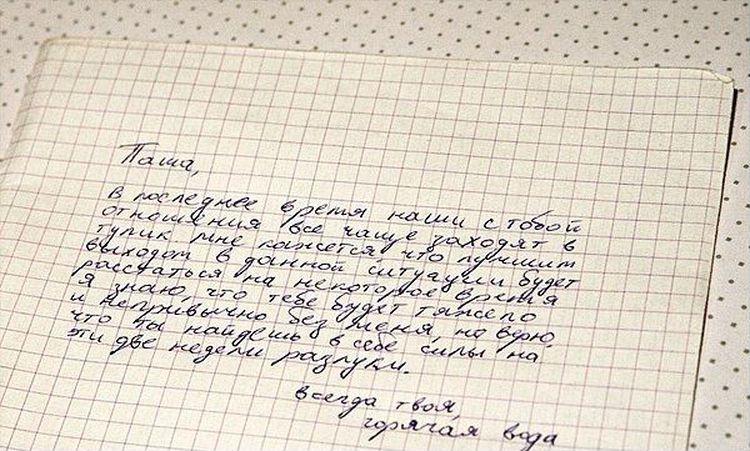 Паша,
В последнее время наши с тобой
отношения все чаще заходят в
тупик мне кажется что лучшим
выходом в данной ситуации будет
расстаться на некоторое время
Я знаю, что тебе будет тяжело
и непривычно без меня, но верю,
что ты найдешь в себе силы на
эти две недели разлуки.
всегда твоя,
горячая вода